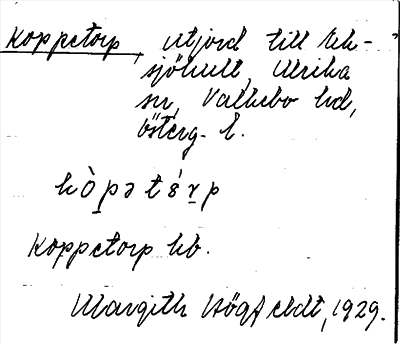 Koppetorp, utjord till Ek-
sjöhult, Ulrika
sn, Valkebo hd,
Österg. l.
kòpət s ́r p
Koppetorp kb.
Margith Högfeldt, 1929.